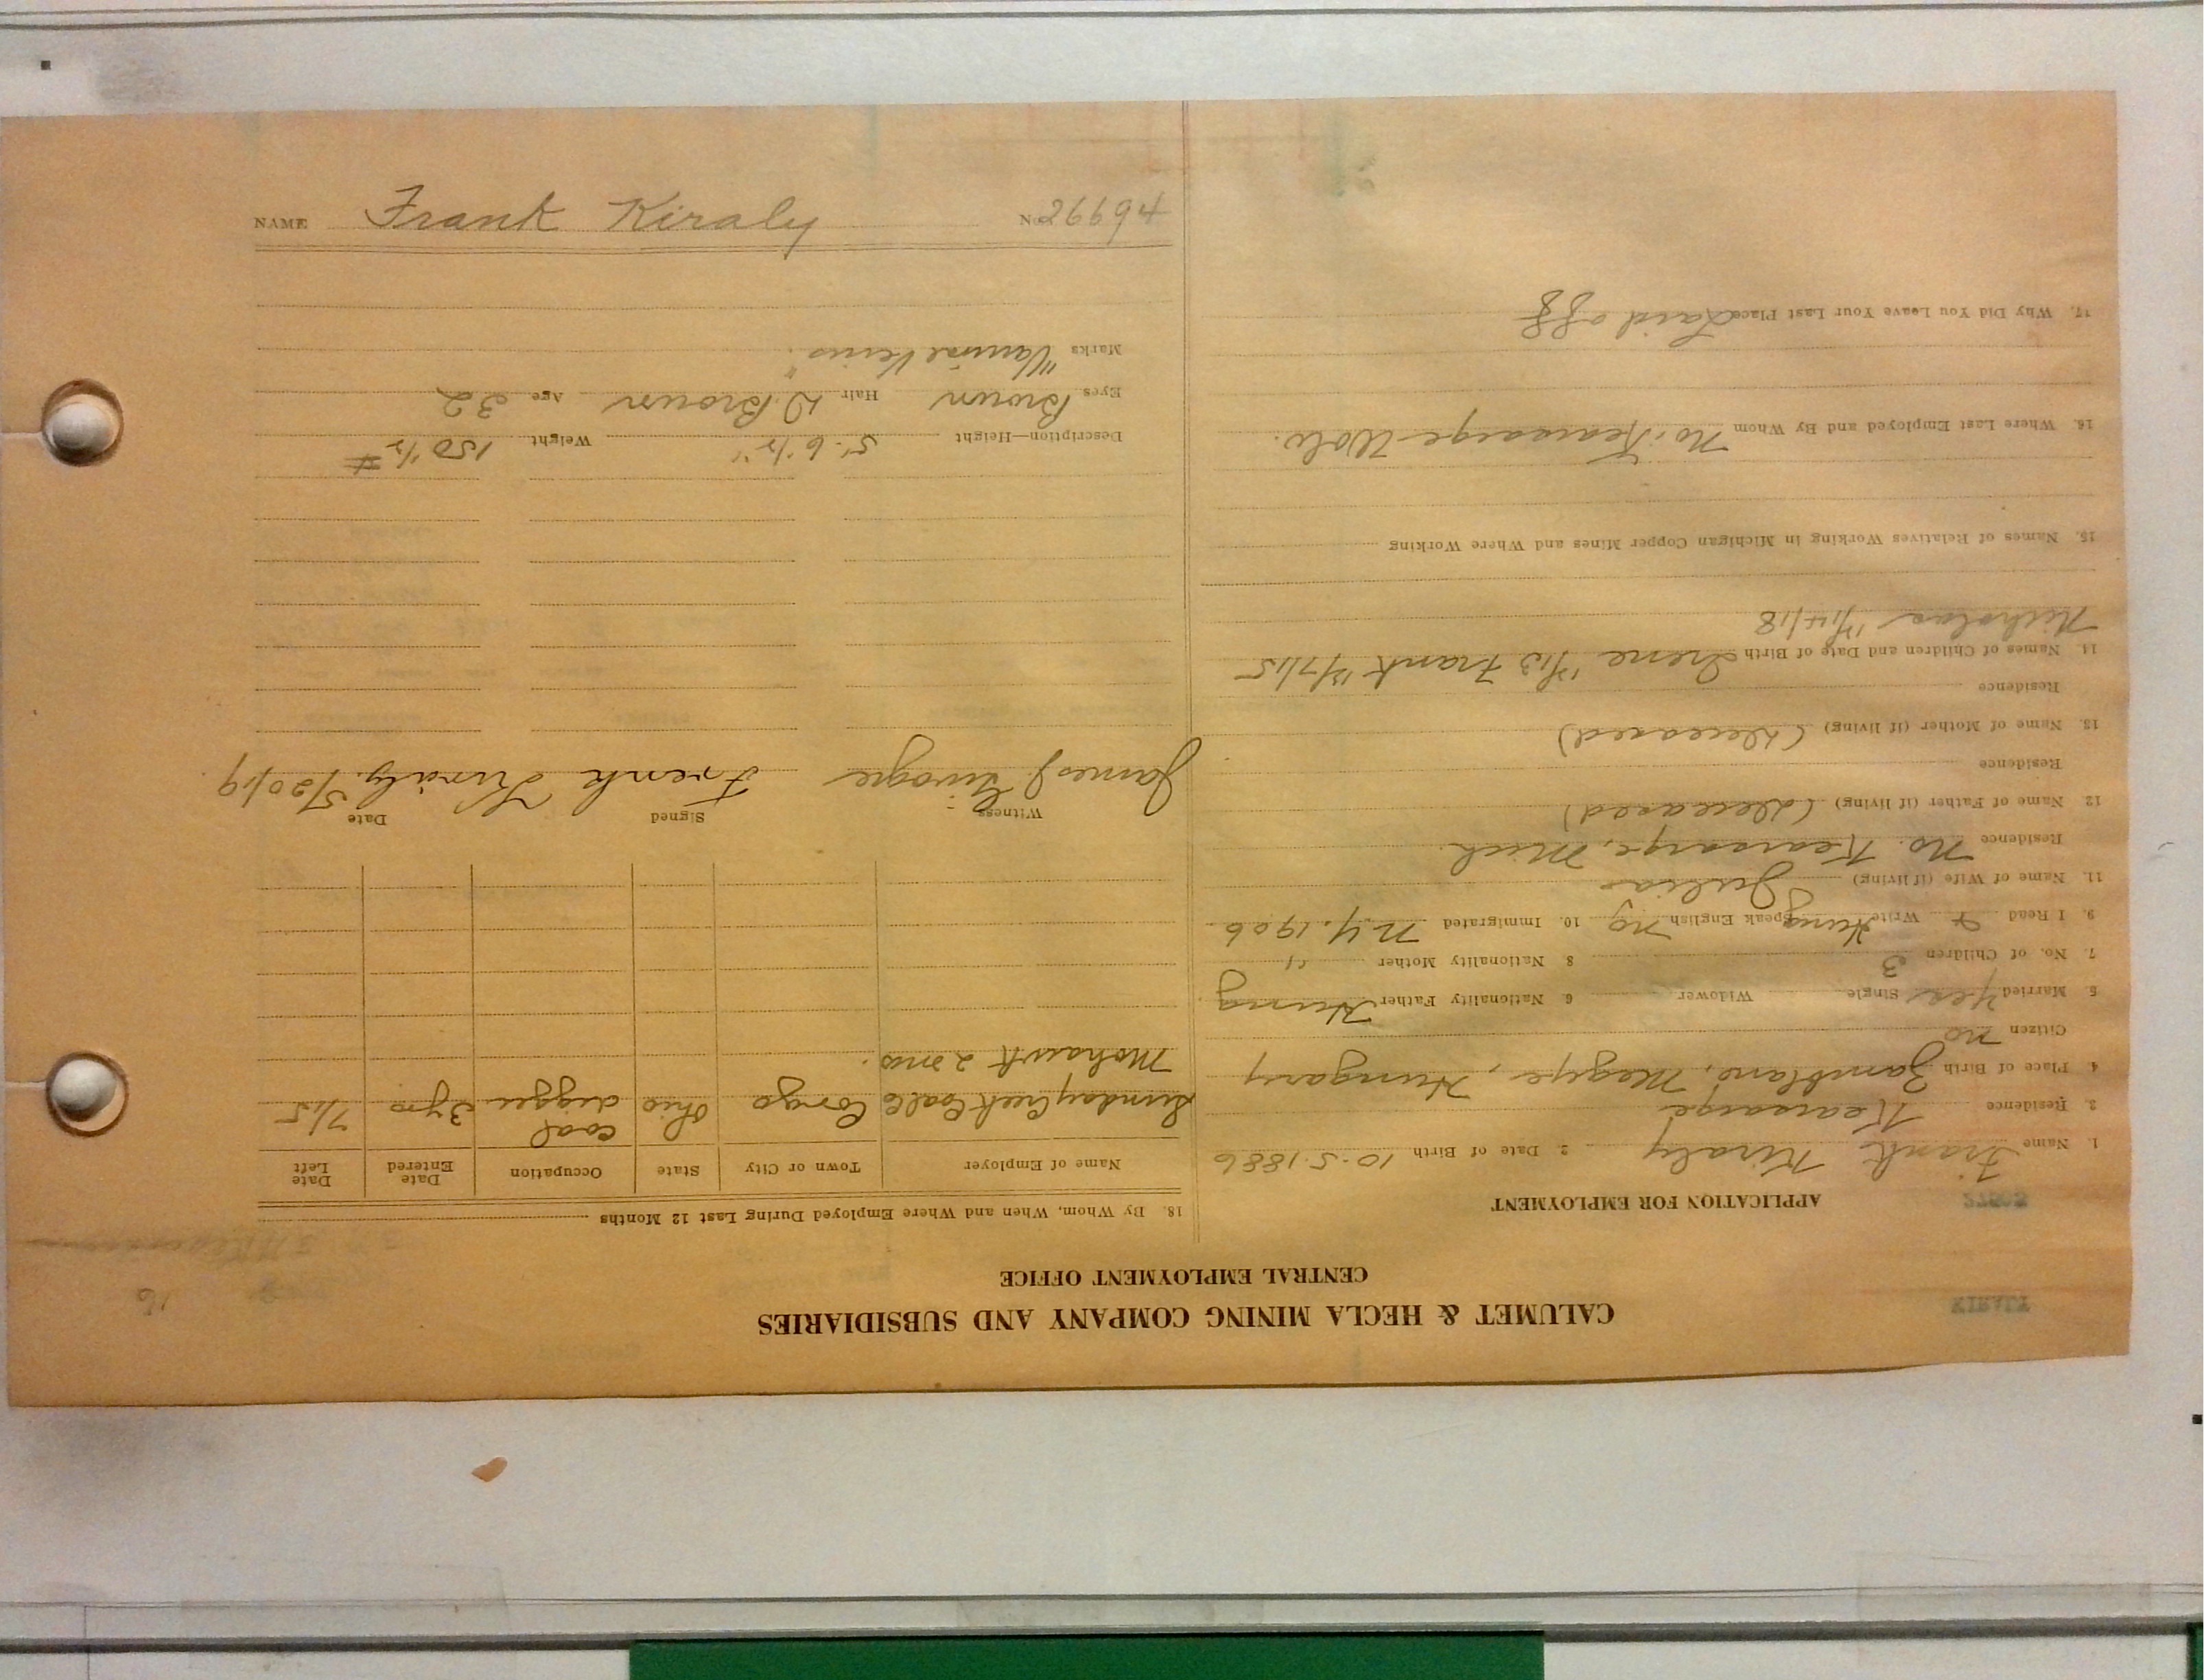 CALUMET & HECLA MINING COMPANY AND SUBSIDIARIES
CENTRAL EMPLOYMENT OFFICE
APPLICATION FOR EMPLOYMENT
1. Name Frank Kiraly 2. Date of Birth 10-5-1886
3. Residence Kearsarge
4. Place of Birth Zamblano, Megye, Hungary
Citizen no
5. Married Yes Single Widower 6. Nationality Father Hung
7. No. of Children 3 8. Nationality Mother "
9. I Read & Write Hung Speak English no 10. Immigrated N.Y. 1906.
11. Name of Wife (if living) Julia
Residence No. Kearsarge, Mich.
12. Name of Father (if living) (deceased)
Residence
13. Name of Mother (if living) (deceased)
Residence
14. Names of Children and Date of Birth Irene Frank
Nicholas
15. Names of Relatives Working in Michigan Copper Mines and Where Working
16. Where Last Employed and By Whom No. Kearsarge
17. Why Did You Leave Your Last Place Laid off
18. By Whom, When and Where Employed During Last 12 Months
Name of Employer Town or City State Occupation Date Entered Date Left
Sunday Creek Coal Co Congo Ohio coal digger 3 yrs 7/15
Mohawk 2 mos.
Witness Signed Date
James J. Frenk Kiraly. 5/20/19
Description—Height 5'-6 1/2" Weight 150 1/2 #
Eyes Brown Hair D. Brown Age 32
Marks "Veins"
NAME Frank Kiraly No 26694